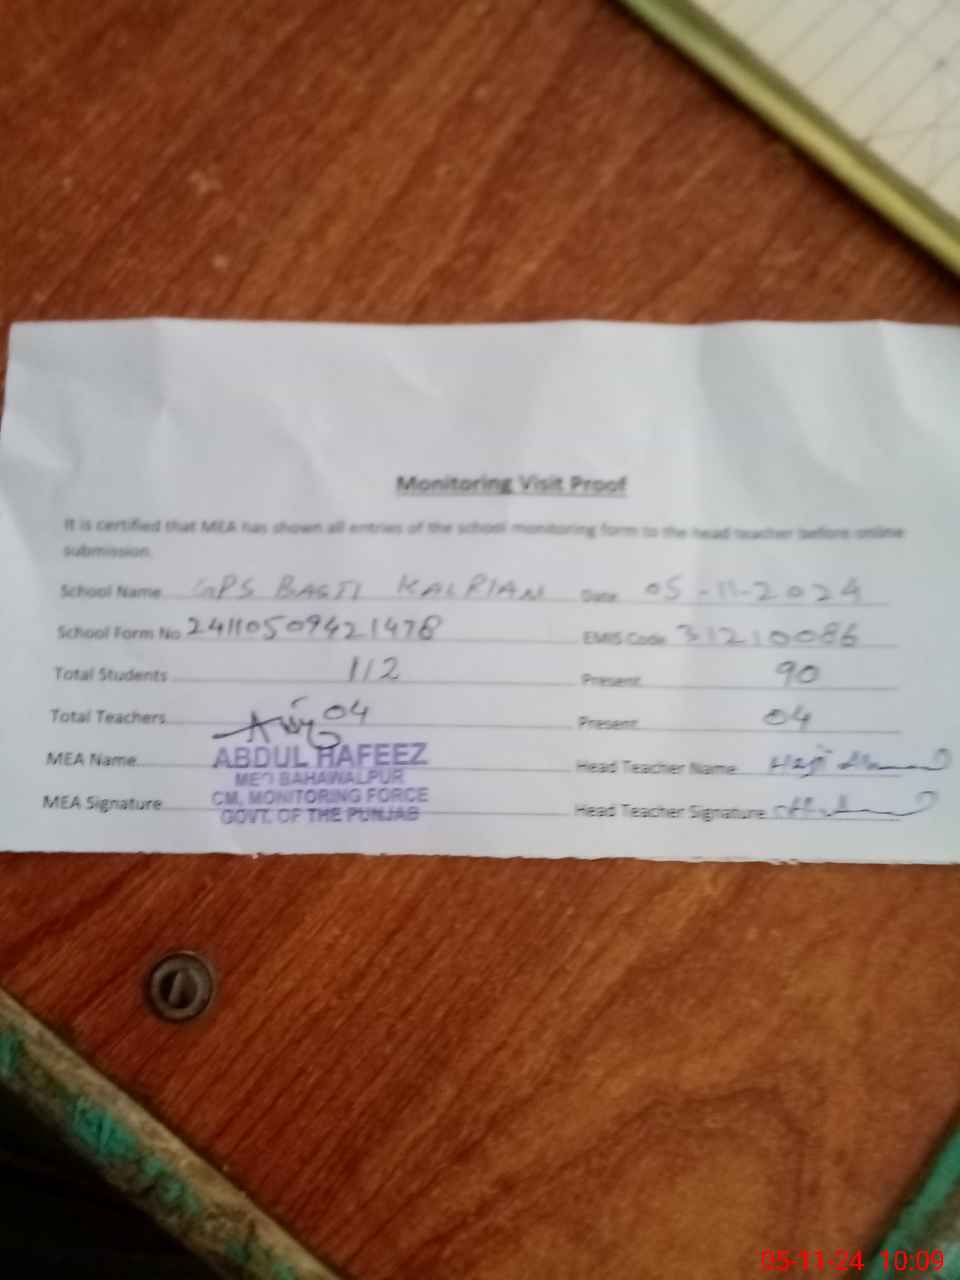 Monitoring Visit Proof
It is certified that MEA has shown all entries of the school monitoring form to the head teacher before online
submission.
School Name GPS BASTI KALRIAN Date 05-11-2024
School Form No 24110509421478 EMIS Code 31210086
Total Students 112 Present 90
Total Teachers 04 Present 04
MEA Name ABDUL HAFEEZ Head Teacher Name
MEO BAHAWALPUR
MEA Signature CM, MONITORING FORCE Head Teacher Signature
GOVT. OF THE PUNJAB
05-11-24 10:09